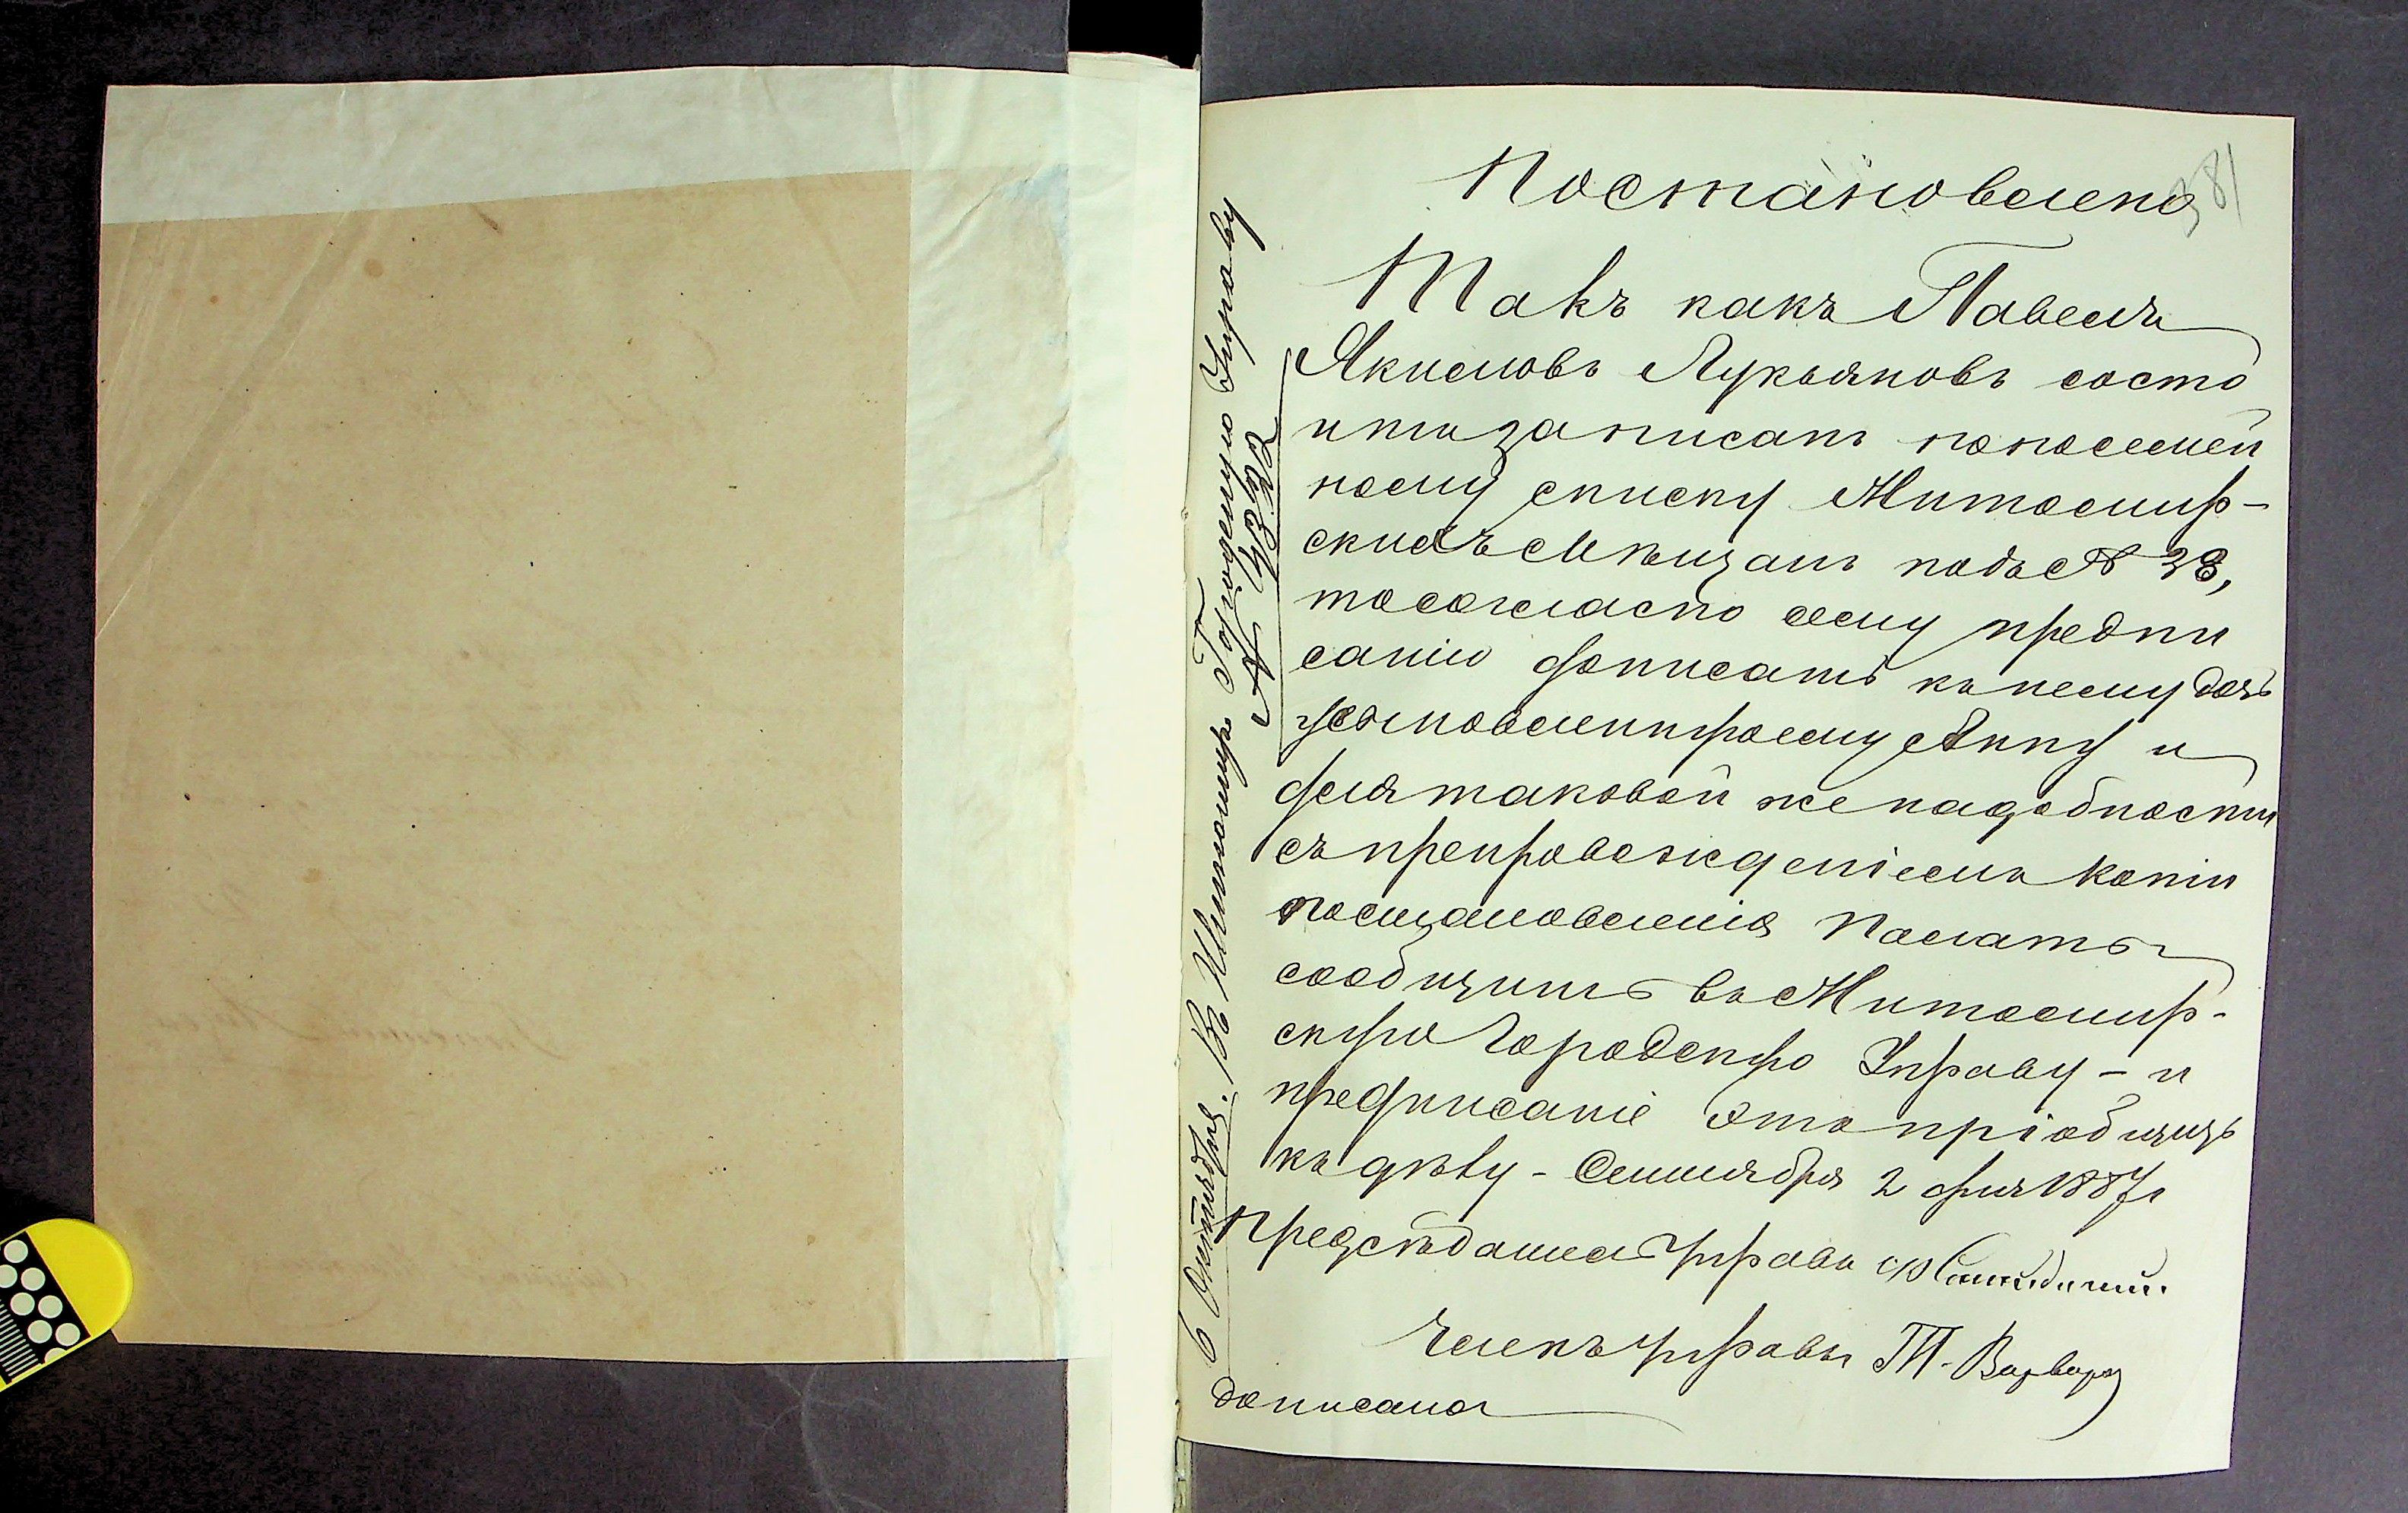 381
Постановлено
Такъ какъ Павелъ
Якимовъ Лукьяновъ состо
итъ записанъ по посемей
ному списку Житомир-
скихъ мѣщанъ подъ № 38,
то согласно сему предпи
санію дописать къ нему дочь
усыновленную ему Анну и
для таковой же надобности
съ препровожденіемъ копіи
постановленія Палаты
сообщить въ Житомир-
скую Городскую Управу - и
предписаніе это пріобщить
къ дѣлу - Сентября 2 дня 1887 г
Предсѣдатель Управы
Членъ Управы М. Варвара
дописана
6 Октября. В Житомирѣ Городскую Управу
№ 4322